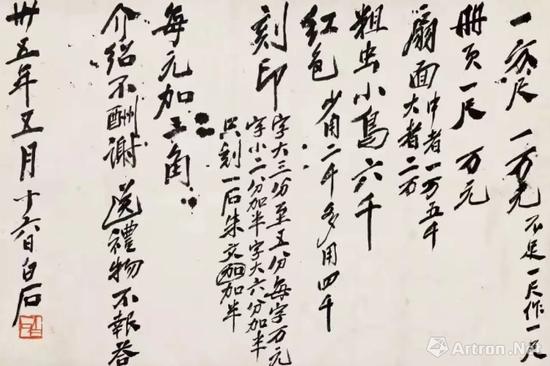 一方尺 一万元 不足一尺作一尺
册頁一尺 万元
扇面 中者一万五千
大者二万
粗虫小鳥六千
紅色 少用二千多用四千
刻印 字大三分至五分每字万元
字小二分加半字大六分加半
只刻一石朱文加半
每元加五角
介紹不酬謝 送禮物不報答
卅五年五月十六日白石
Artron.Net